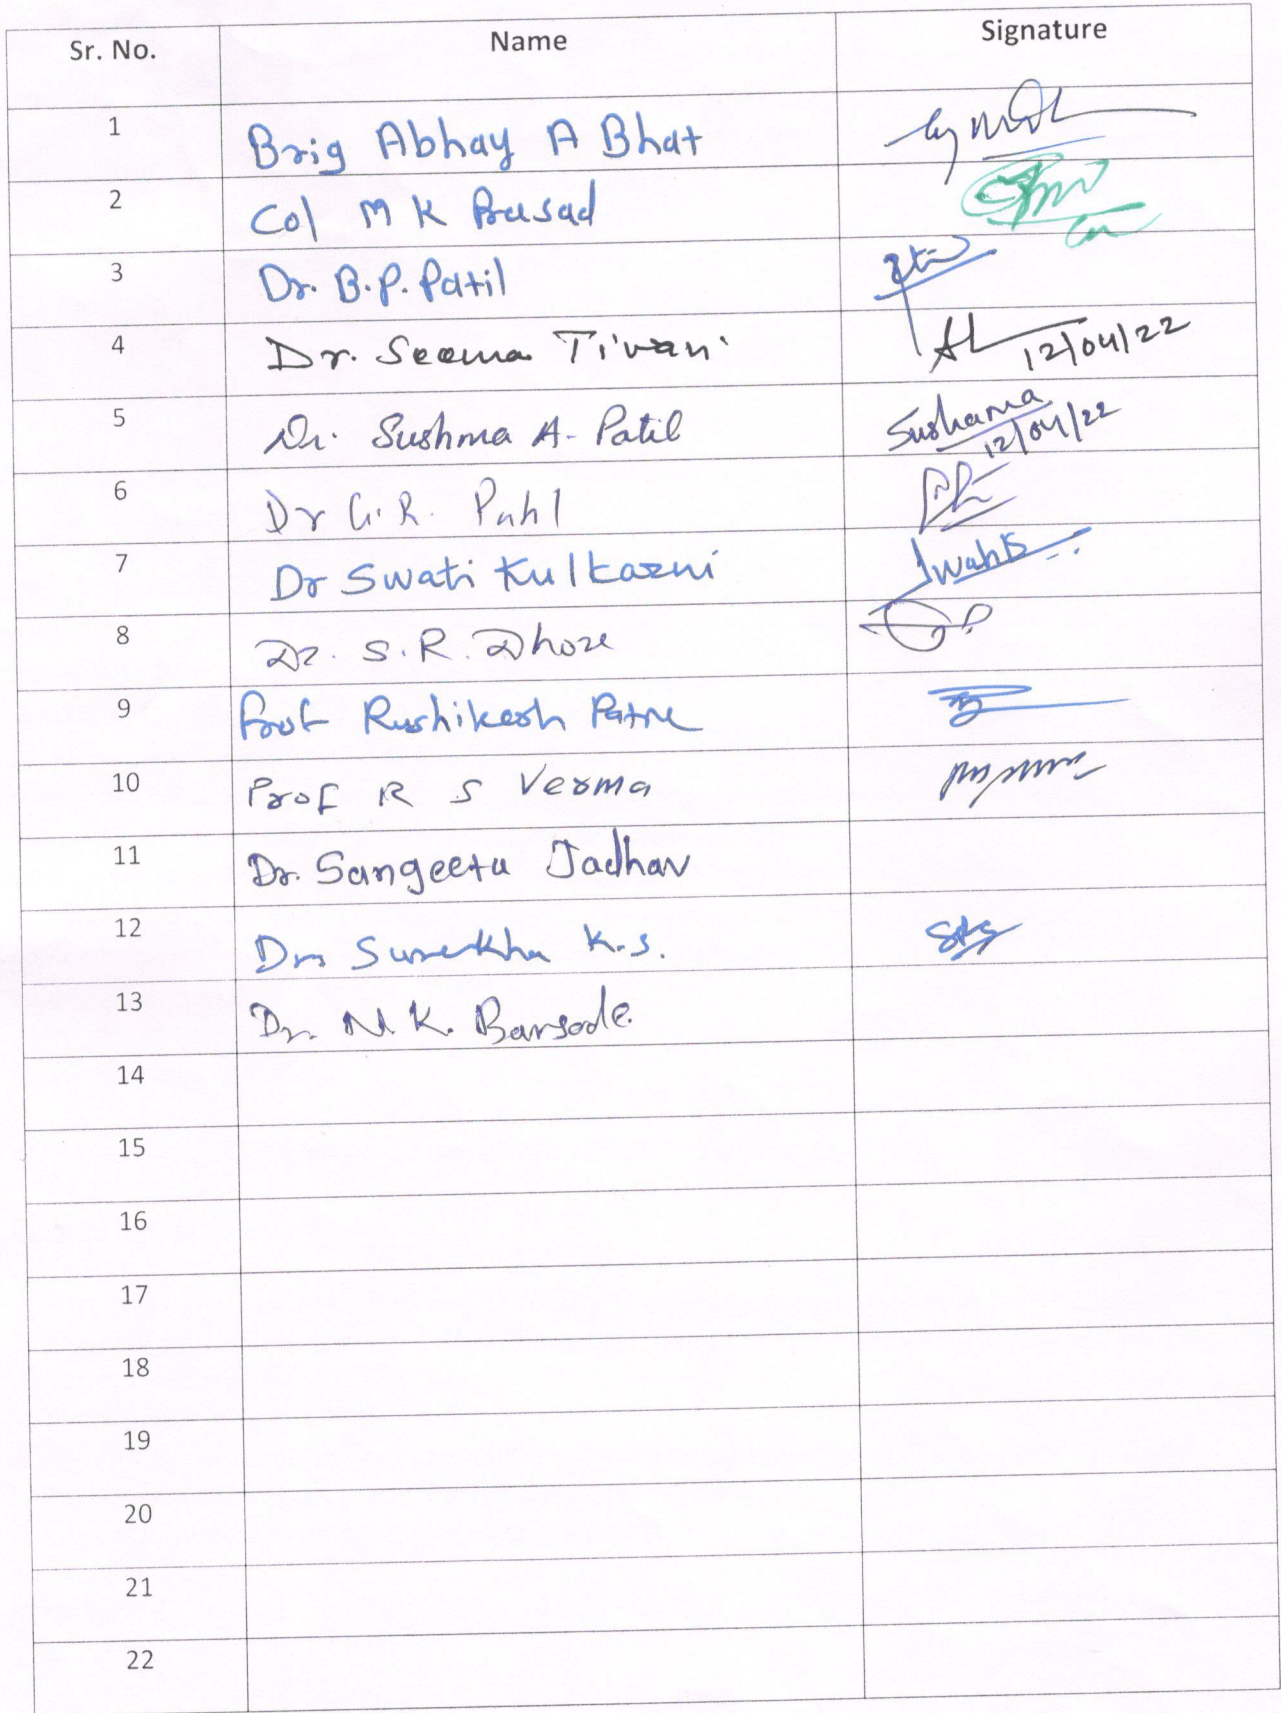 Sr. No. Name Signature
1 Brig Abhay A Bhat
2 Col M K Prasad
3 Dr. B.P. Patil
4 Dr. Seema Tiwari 12/04/22
5 Dr. Sushma A. Patil Sushama 12/04/22
6 Dr G.R. Patil
7 Dr Swati Kulkarni
8 Dr. S.R. Dhore
9 Prof Rushikesh Patne
10 Prof R S Verma
11 Dr. Sangeeta Jadhav
12 Dr. Surekha K.S.
13 Dr. N.K. Bansode
14
15
16
17
18
19
20
21
22